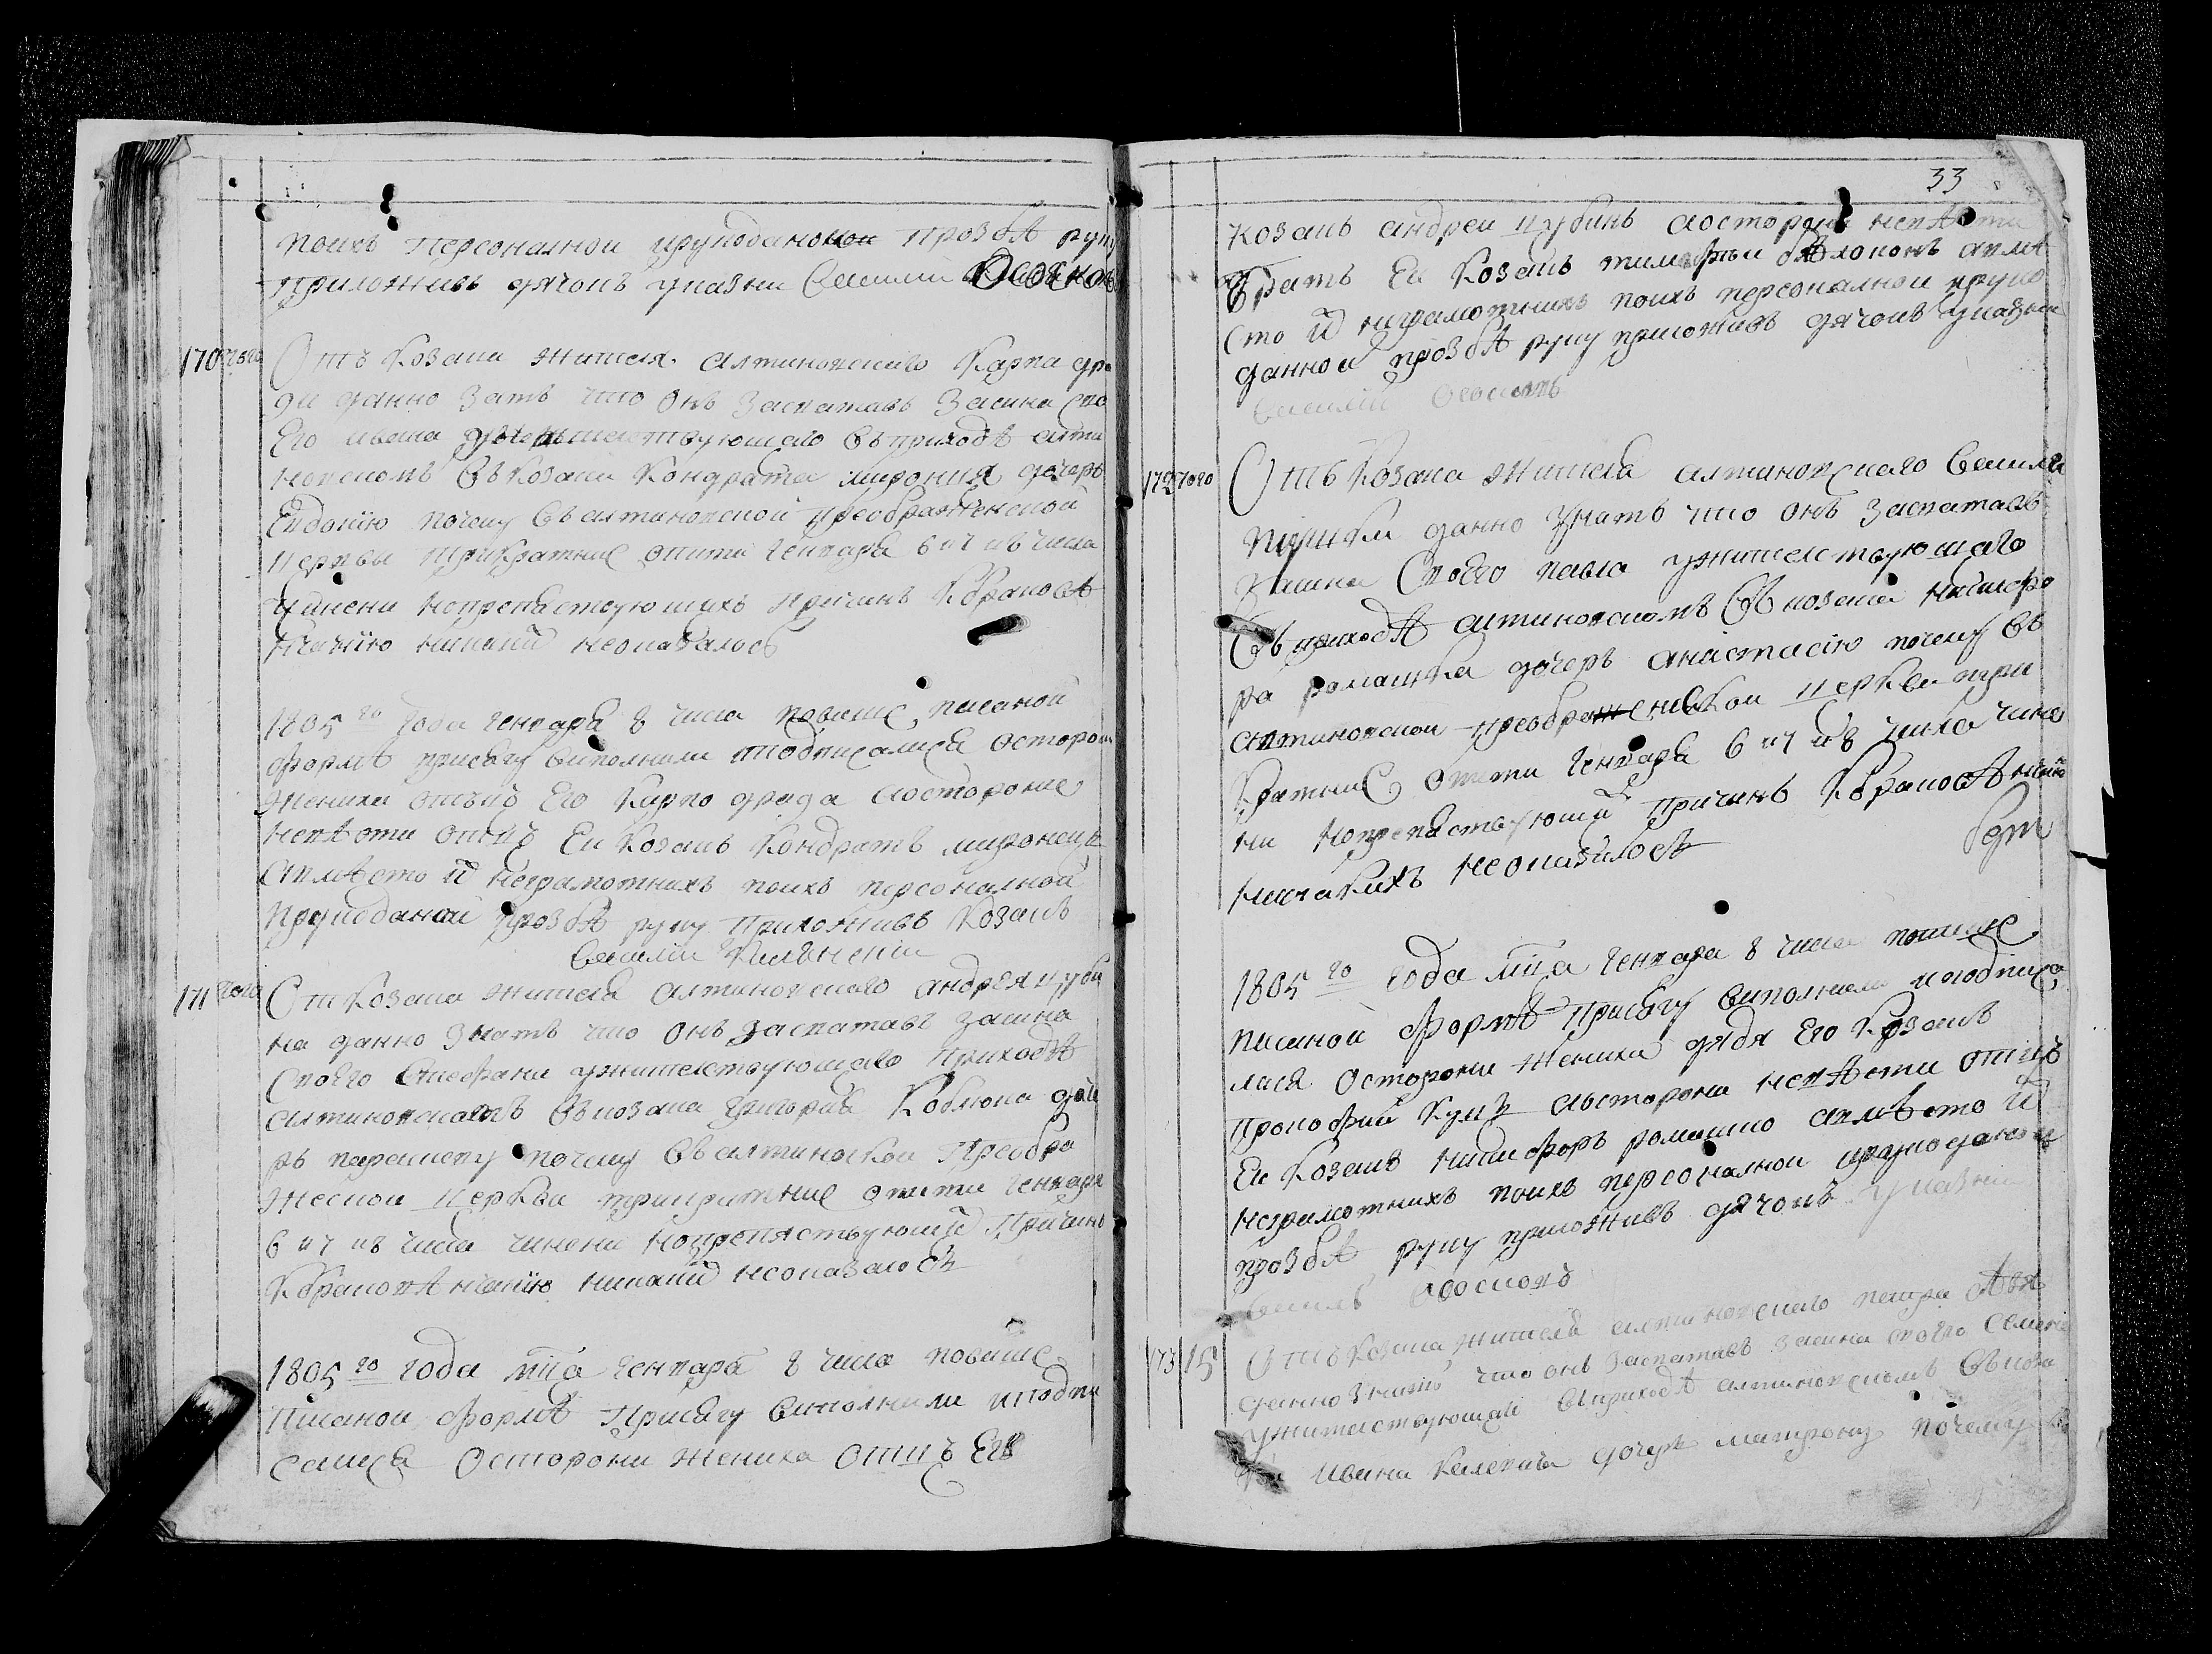 поихъ персоналной ирукоданной прозбѣ руку
приложивъ дячокъ указни Василий Осовскои
170 того Отъ козака жителя алтиновского Карпа дра
ги данно знать что онъ засватавъ засина сво
его ивана ужителствующаго въ приходѣ алти
новскомъ въ козака Кондрата миронця дочерь
Евдокію почему въ алтиновской преображенской
церкви трикратние опити генваря 6 и 7 и 8 числа
чинени нопрепяствующихъ причинъ Кбракосо
чтанію никакий неоказалось
1805 го года генваря 8 числа повише писаной
формѣ присягу виполнили иподписалися осторони
жениха отецъ Его Карпо драга аостороние
невѣсти отецъ Еи Козакъ Кондратъ миронецъ
авмѣсто й неграмотнихъ поихъ персоналной
ирукоданой прозбѣ руку приложивъ козакъ
Василий
171 того От Козака жителя алтиновского андрея цуби
на данно знать что онъ засватавъ засина
своего Стефана ужителствующаго приходѣ
алтиновскомъ въ козака григория Коблюка доче
рь параскеву почему въ алтиновской Преобра
жеской церкви трикратние опити генваря
6 и 7 и 8 числа чинени нопрепяствующий причинъ
Кбракосочтанію никаких неоказалось
1805 го года мца генваря 8 числа повише
писаной формѣ Присягу виполнили иподпи
салися Осторони жениха отецъ Его
33
козакъ андреи цубинъ аосторони невѣсти
братъ Еи Козакъ тимофеи авмѣ
сто й неграмотнихъ поихъ персоналной ируко
данной прозбѣ руку приложивъ дячокъ указни
Василий
172 того Отъ Козака жителя алтиновского Василя
данно знать что онъ засватавъ
засина своего павла ужителствующаго
въ приходѣ алтиновскомъ въ козака никифо
ра ромашка дочерь анастасію почему въ
алтиновской преображенской церкви три
кратние опити генваря 6 и 7 и 8 числа чине
ни нопрепяствующий причинъ Кбракосочтанію
никакихъ неоказалось
1805 го года мца генваря 8 числа повише
писаной формѣ присягу виполнили иподписа
лися осторони жениха дядя Его Козакъ
прокофий аосторони невѣсти отецъ
Еи козакъ никифоръ ромашко авмѣсто й
неграмотнихъ поихъ персоналной ирукоданой
прозбѣ руку приложивъ дячокъ указни
Василъ
173 15 Отъ Козака жителя алтиновского петра
данно знать что онъ засватавъ засина своего Семена
ужителствующаго въ приходѣ алтиновскомъ въ коза
ка ивана дочерь матрону почему